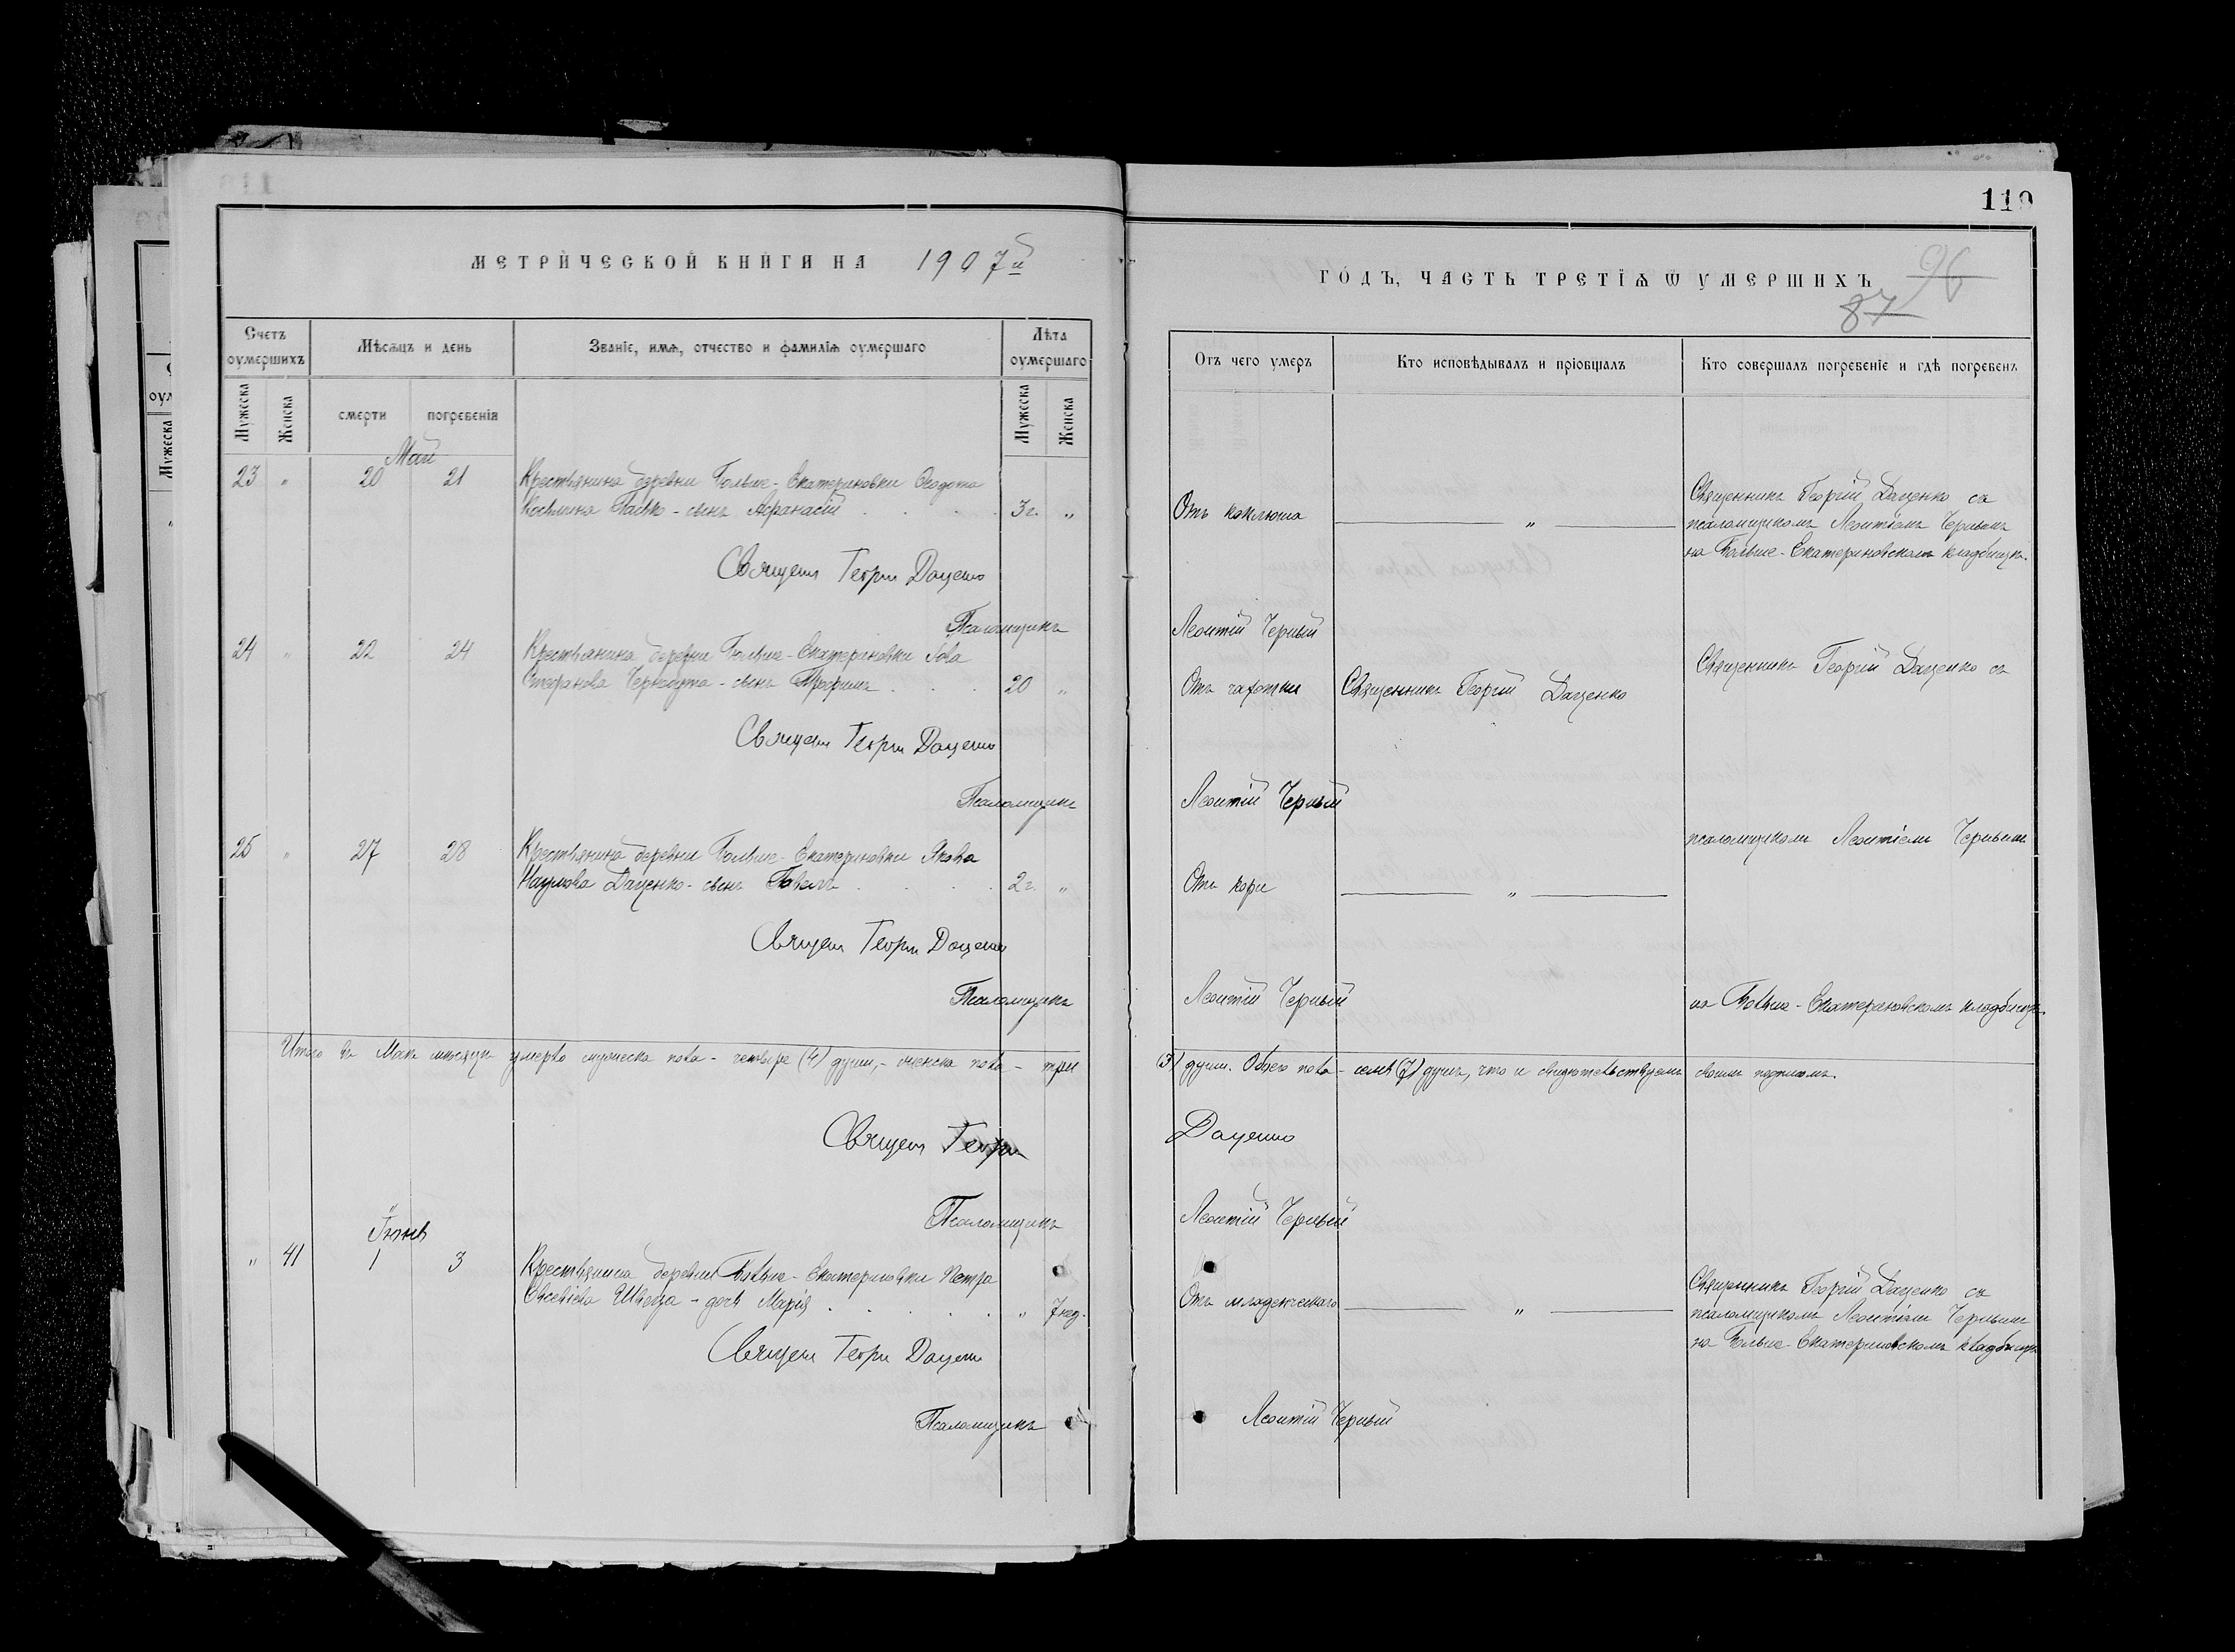 119
МЕТРИЧЕСКОЙ КНИГИ НА 1907й
ГОДЪ, ЧАСТЬ ТРЕТІѦ Ѿ УМЕРШИХЪ
96
87
Счетъ оумершихъ
Мѣсѧцъ и день
Званіе, имѧ, отчество и фамиліѧ оумершаго
Лѣта оумершаго
Мужеска
Женска
смерти
погребеніѧ
Мужеска
Женска
Отъ чего умеръ
Кто исповѣдывалъ и пріобщалъ
Кто совершалъ погребеніе и гдѣ погребенъ
Май
23 " 20 21 Крестьянина деревни Больше-Екатериновки Ѳеодота
сынъ Аѳанасій 3 г. "
Отъ коклюша "
Священникъ Георгій Даценко съ
псаломщикомъ Леонтіемъ Чернымъ
на Больше-Екатериновскомъ кладбищѣ.
Священ Георгій Даценко
Псаломщикъ Леонтій Черный
24 " 22 24 Крестьянина деревни Больше-Екатериновки Іова
Стефанова сынъ Трофимъ 20 "
Отъ чахотки
Священникъ Георгій Даценко
Священникъ Георгій Даценко съ
Священ Георгій Даценко
Псаломщикъ Леонтій Черный
псаломщикомъ Леонтіемъ Чернымъ
25 " 27 28 Крестьянина деревни Больше-Екатериновки Якова
Наумова Даценко - сынъ Павелъ 2 г. "
Отъ кори "
Священ Георгій Даценко
Псаломщикъ Леонтій Черный
на Больше-Екатериновскомъ кладбищѣ.
Итого въ Маѣ мѣсяцѣ умерло мужеска пола - четыре (4) души, - женска пола - три (3) души. Обоего пола - семь (7) душъ, что и свидѣтельствуемъ своимъ подписомъ.
Священ Георгій Даценко
Псаломщикъ Леонтій Черный
Іюнь
" 41 1 3 Крестьянина деревни Больше-Екатериновки Петра
Евсевіева Швеца - дочь Марія " 7 нед.
Отъ младенческаго "
Священникъ Георгій Даценко съ
псаломщикомъ Леонтіемъ Чернымъ
на Больше-Екатериновскомъ кладбищѣ
Священ Георгій Даценко
Псаломщикъ Леонтій Черный